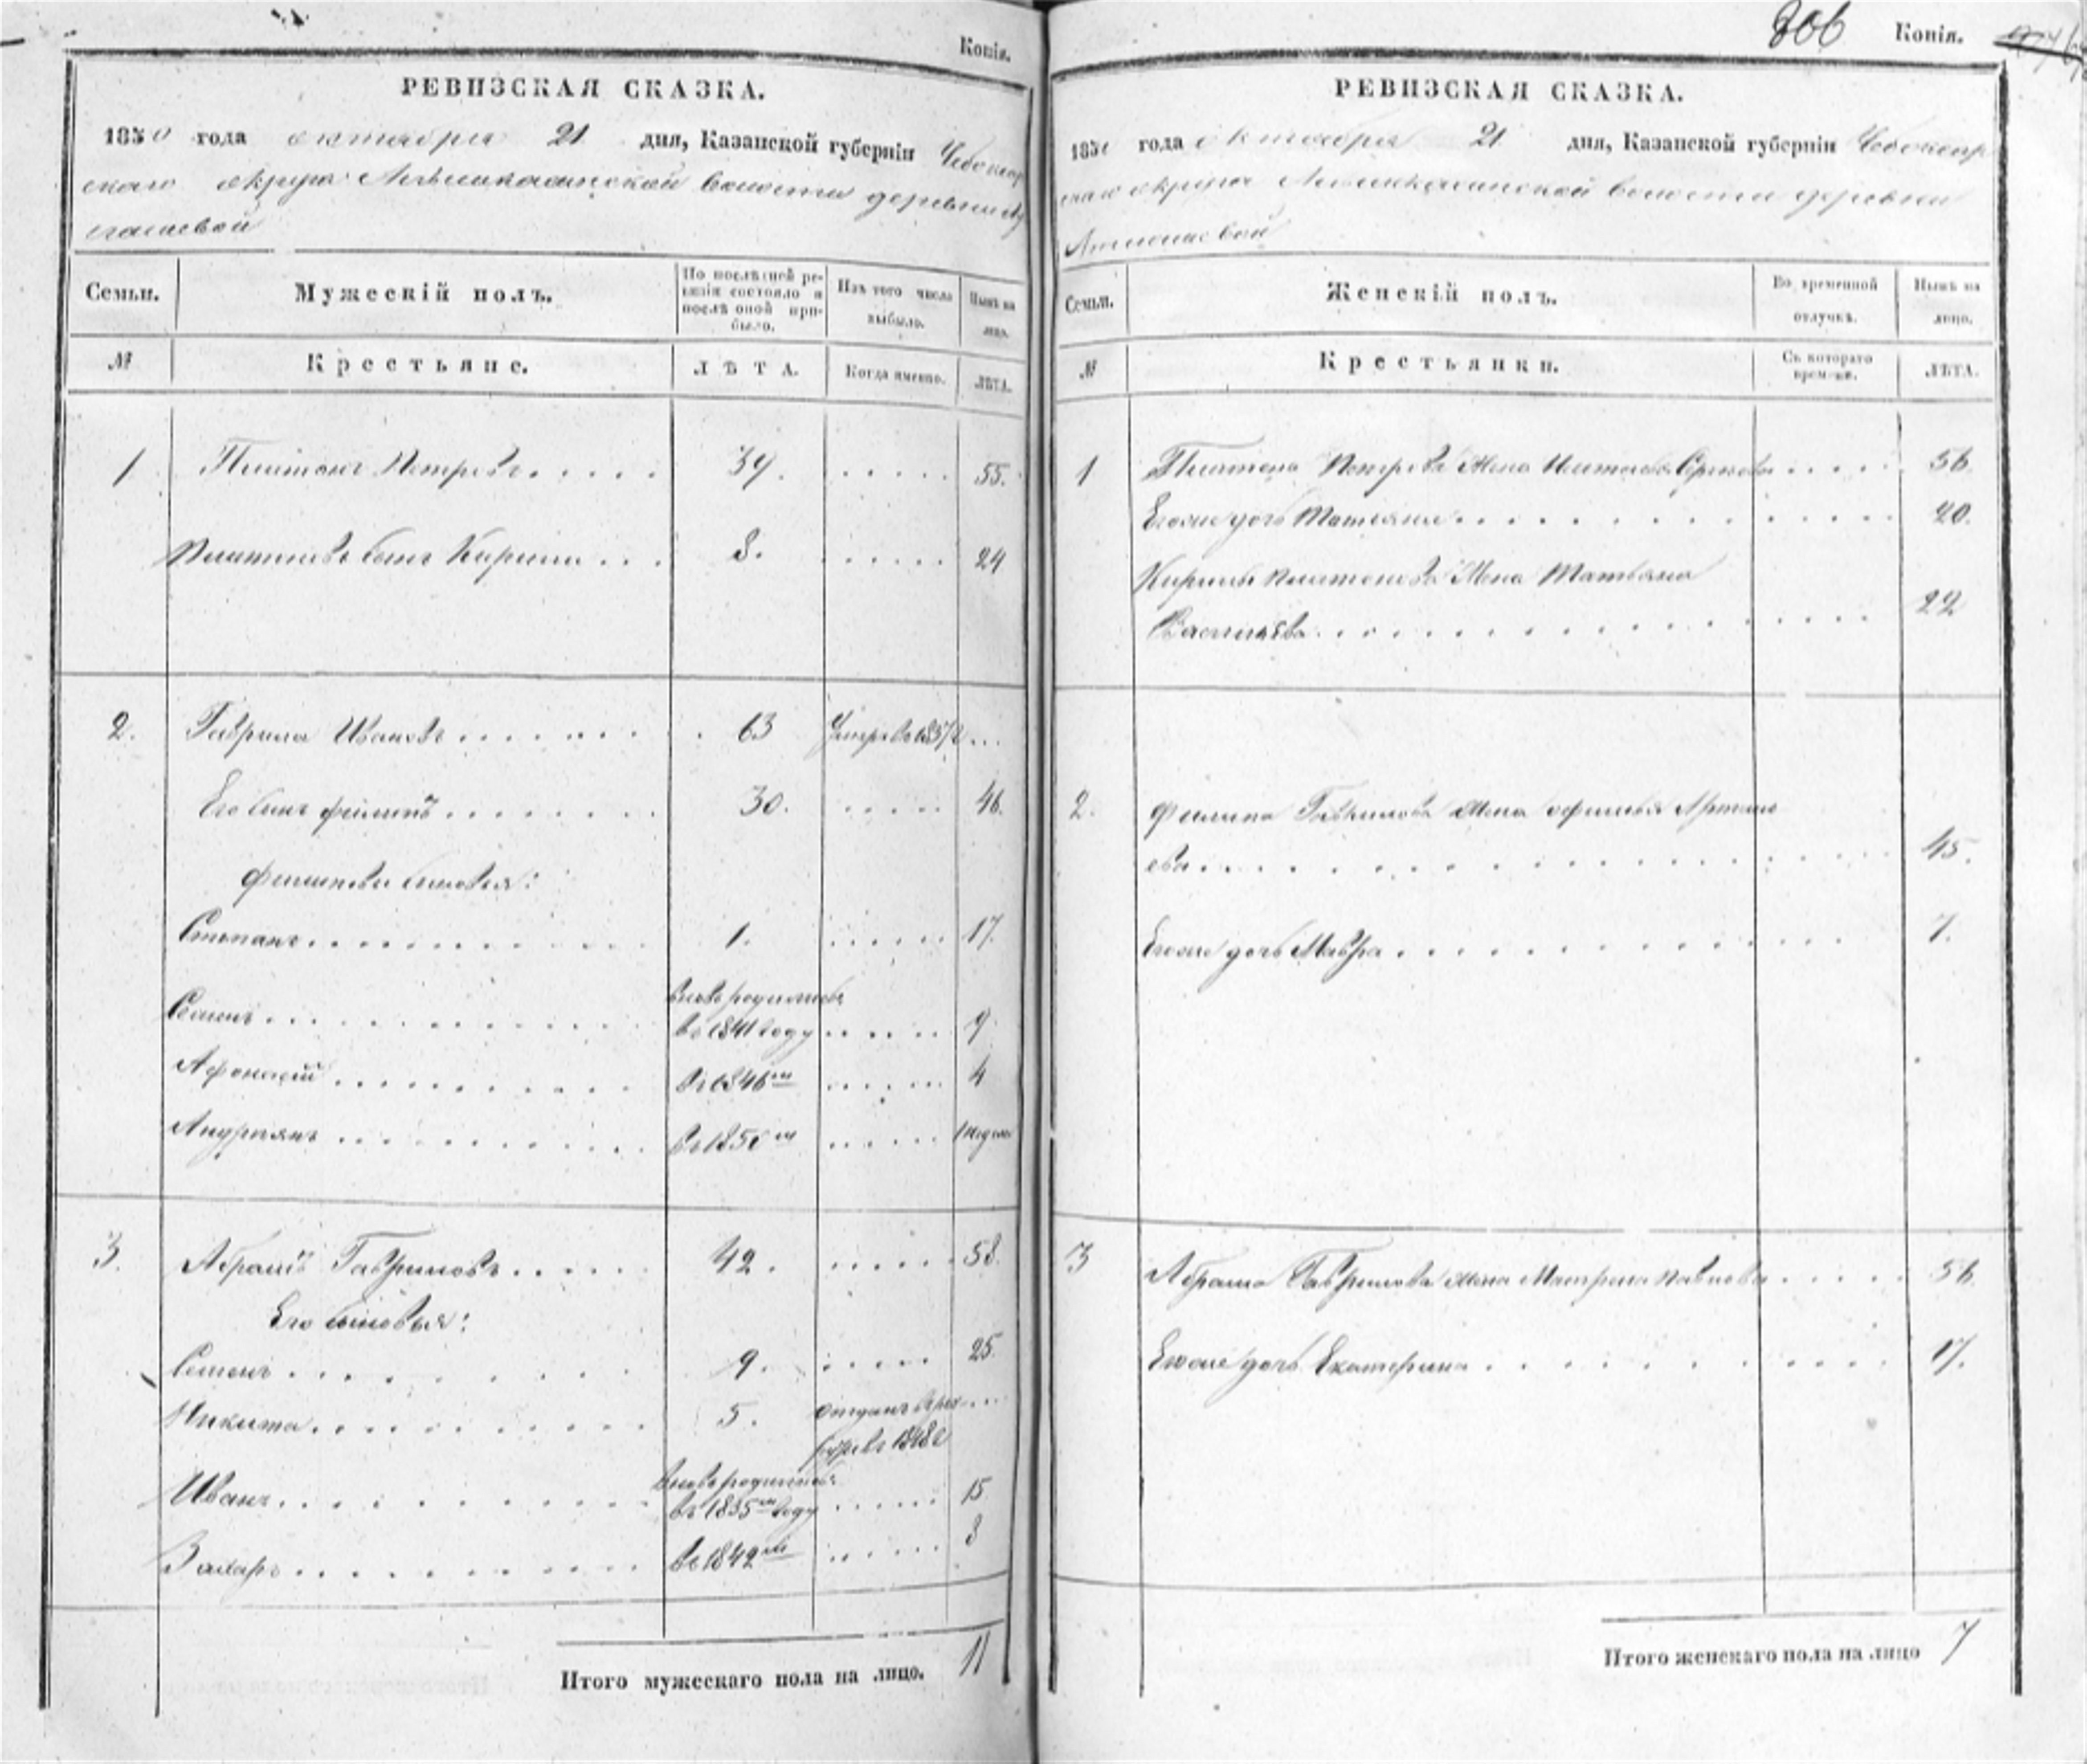 Копія.
РЕВИЗСКАЯ СКАЗКА.
1850 года октября 21 дня, Казанской губерніи Чебоксар
скаго округа волости деревни
Семьи.
Мужескій полъ.
По послѣдней ре-
визіи состояло и
послѣ оной при-
было.
Изъ того числа
выбыло.
Нынѣ на
лицо.
№
Крестьяне.
ЛѢТА.
Когда именно.
ЛѢТА.
1 Платонъ Петровъ 39. 55.
Платоновъ сынъ Кирила 8. 24
2. Гаврила Ивановъ 63 Умеръ въ
Его сынъ Филипъ 30. 46.
Филиповы сыновья:
Степанъ 1. 17.
вновь родились
Семенъ въ 1841 году 9
Афонасій въ 1846 м 4
Андреянъ въ 1850 м
3. Абрамъ Гавриловъ 42. 58.
Его сыновья:
Семенъ 9. 25.
Никита 5. отданъ въ рек
руты въ
вновь родились
Иванъ въ 1835 м году 15
Захаръ въ 1842 м 8
Итого мужескаго пола на лицо. 11
306 Копія.
РЕВИЗСКАЯ СКАЗКА.
1850 года октября 21 дня, Казанской губерніи Чебоксар
скаго округа волости деревни
Семьи.
Женскій полъ.
Во временной
отлучкѣ.
Нынѣ на
лицо.
№
Крестьянки.
Съ котораго
времени.
ЛѢТА.
1 Платона Петрова жена 56.
Егоже дочь Татьяна 20.
Кирилы Платонова жена Татьяна
Васильева 22
2. Филипа Гаврилова жена Офимья Артемь
ева 45.
Егоже дочь Мавра 7.
3 Абрама Гаврилова жена Матрена Павлова 56.
Егоже дочь Екатерина 17.
Итого женскаго пола на лицо 7